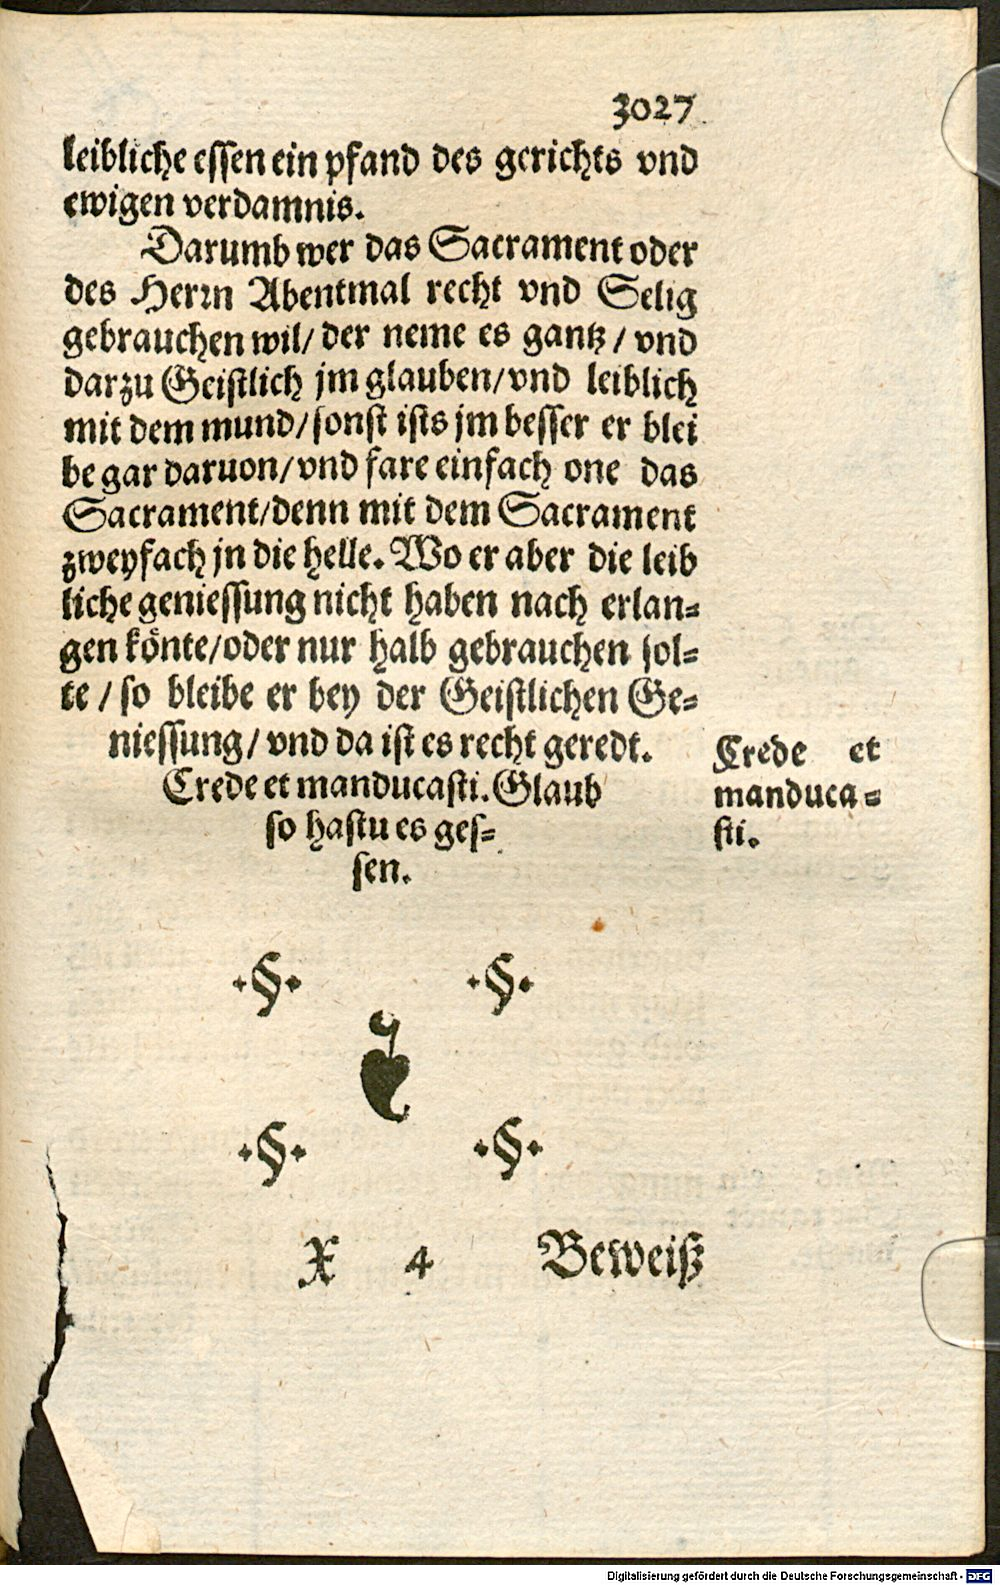 3027
leibliche essen ein pfand des gerichts vnd
ewigen verdamnis.
Darumb wer das Sacrament oder
des Herrn Abentmal recht vnd Selig
gebrauchen wil/ der neme es gantz / vnd
darzu Geistlich jm glauben/vnd leiblich
mit dem mund/sonst ists jm besser er blei
be gar daruon/vnd fare einfach one das
Sacrament/denn mit dem Sacrament
zweyfach jn die helle. Wo er aber die leib
liche geniessung nicht haben nach erlan=
gen könte/oder nur halb gebrauchen sol=
te / so bleibe er bey der Geistlichen Ge=
niessung/ vnd da ist es recht geredt.
Crede et manducasti. Glaub
so hastu es ges=
sen.
Crede et
manduca=
sti.
·§· ·§·
·§· ·§·
X 4 Beweiß
Digitalisierung gefördert durch die Deutsche Forschungsgemeinschaft - DFG